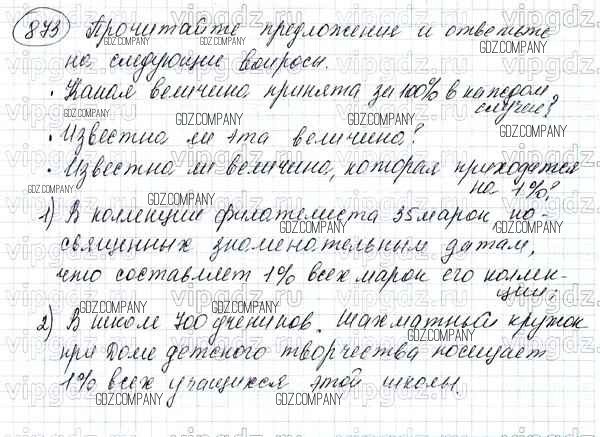 873 Прочитайте предложение и ответьте
на следующие вопросы.
· Какая величина принята за 100% в каждом
случае?
· Известна ли эта величина?
· Известна ли величина, которая приходится
на 1%?
1) В коллекции филателиста 35 марок по-
священных знаменательным датам,
что составляет 1% всех марок его коллек-
ции;
2) В школе 700 учеников. Шахматный кружок
при Доме детского творчества посещает
1% всех учащихся этой школы.